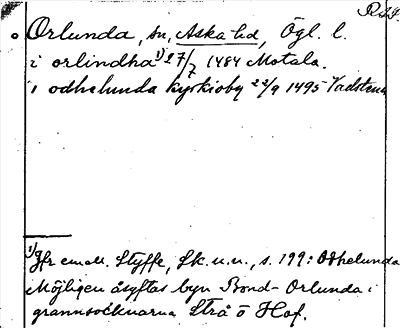 R.A.P.
Orlunda, sn, Aska hd, Ögl. l.
i orlindha ¹) 27/7 1484 Motala.
i odhelunda kyrkioby 22/9 1495 Vadstena
¹) Jfr emell. Styffe, Sk. u. u., s. 199: Odhelunda
Möjligen åsyftas byn Bond-Orlunda i
grannsocknarna Strå o Hof.